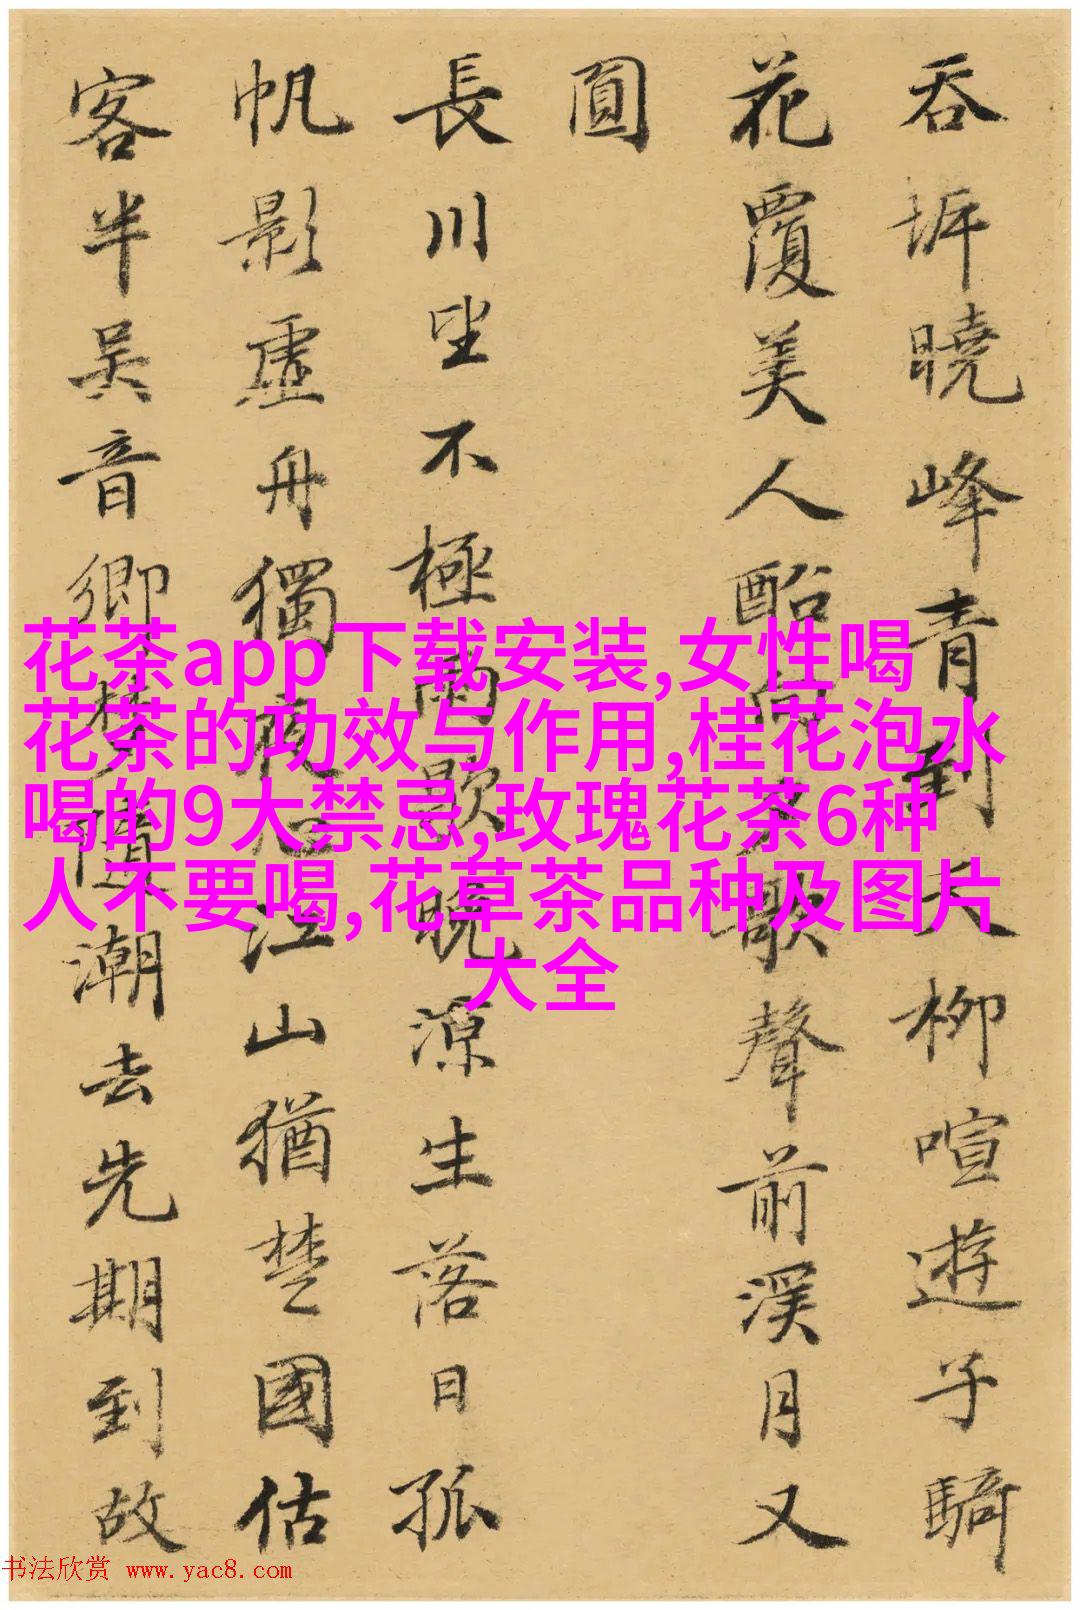 吞圻曉峰青到天柳喧遊子騎
花覆美人酩歌聲前溪月又
圓
長川坐不極雨歇晚源生落日孤
帆影虛舟獨夜心江山猶楚國估
客半吳音鄉夢隨潮去先期到故
花茶app下载安装,女性喝
花茶的功效与作用,桂花泡水
喝的9大禁忌,玫瑰花茶6种
人不要喝,花草茶品种及图片
大全
书法欣赏 www.yac8.com